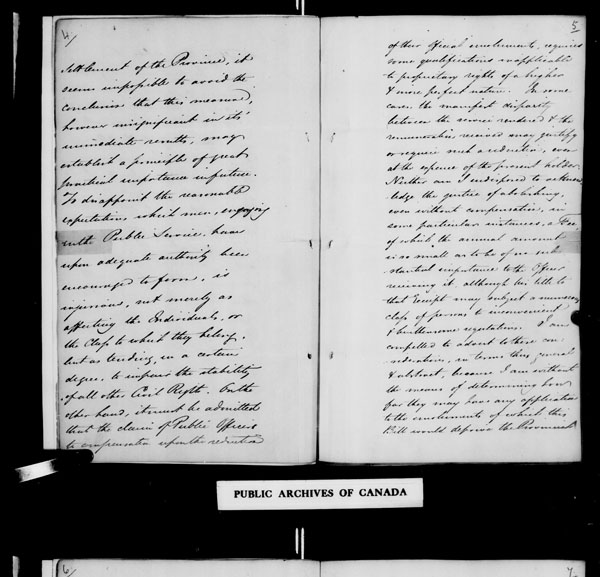 4/
Settlement of the Province, it
seems impossible to avoid the
conclusion that this measure,
however insignificant in its
immediate results, may
establish a principle of great
practical importance in future.
To disappoint the reasonable
expectations which men, engaging
in the Public Service, have
upon adequate authority been
encouraged to form, is
injurious, not merely as
affecting the Individuals, or
the Class to which they belong,
but as tending, in a certain
degree, to impair the stability
of all other Civil Rights. On the
other hand, it must be admitted
that the claim of Public Officers
to compensation upon the reduction
5/
of their Official emoluments, requires
some qualifications inapplicable
to proprietary rights of a higher
& more perfect nature. In some
cases the manifest disparity
between the service rendered & the
remuneration received may justify
or require such a reduction, even
at the expense of the present holder.
Neither am I indisposed to acknow
ledge the justice of abolishing,
even without compensation, in
some particular instances, a Fee,
of which the annual amount
is so small as to be of no sub
stantial importance to the Officer
receiving it, although his title to
that receipt may subject a numerous
class of persons to inconvenient
& burthensome regulations. I am
compelled to advert to these con
siderations, in terms thus general
& abstract, because I am without
the means of determining how
far they may have any application
to the emoluments of which this
Bill would deprive the Provincial
PUBLIC ARCHIVES OF CANADA
6/
7/